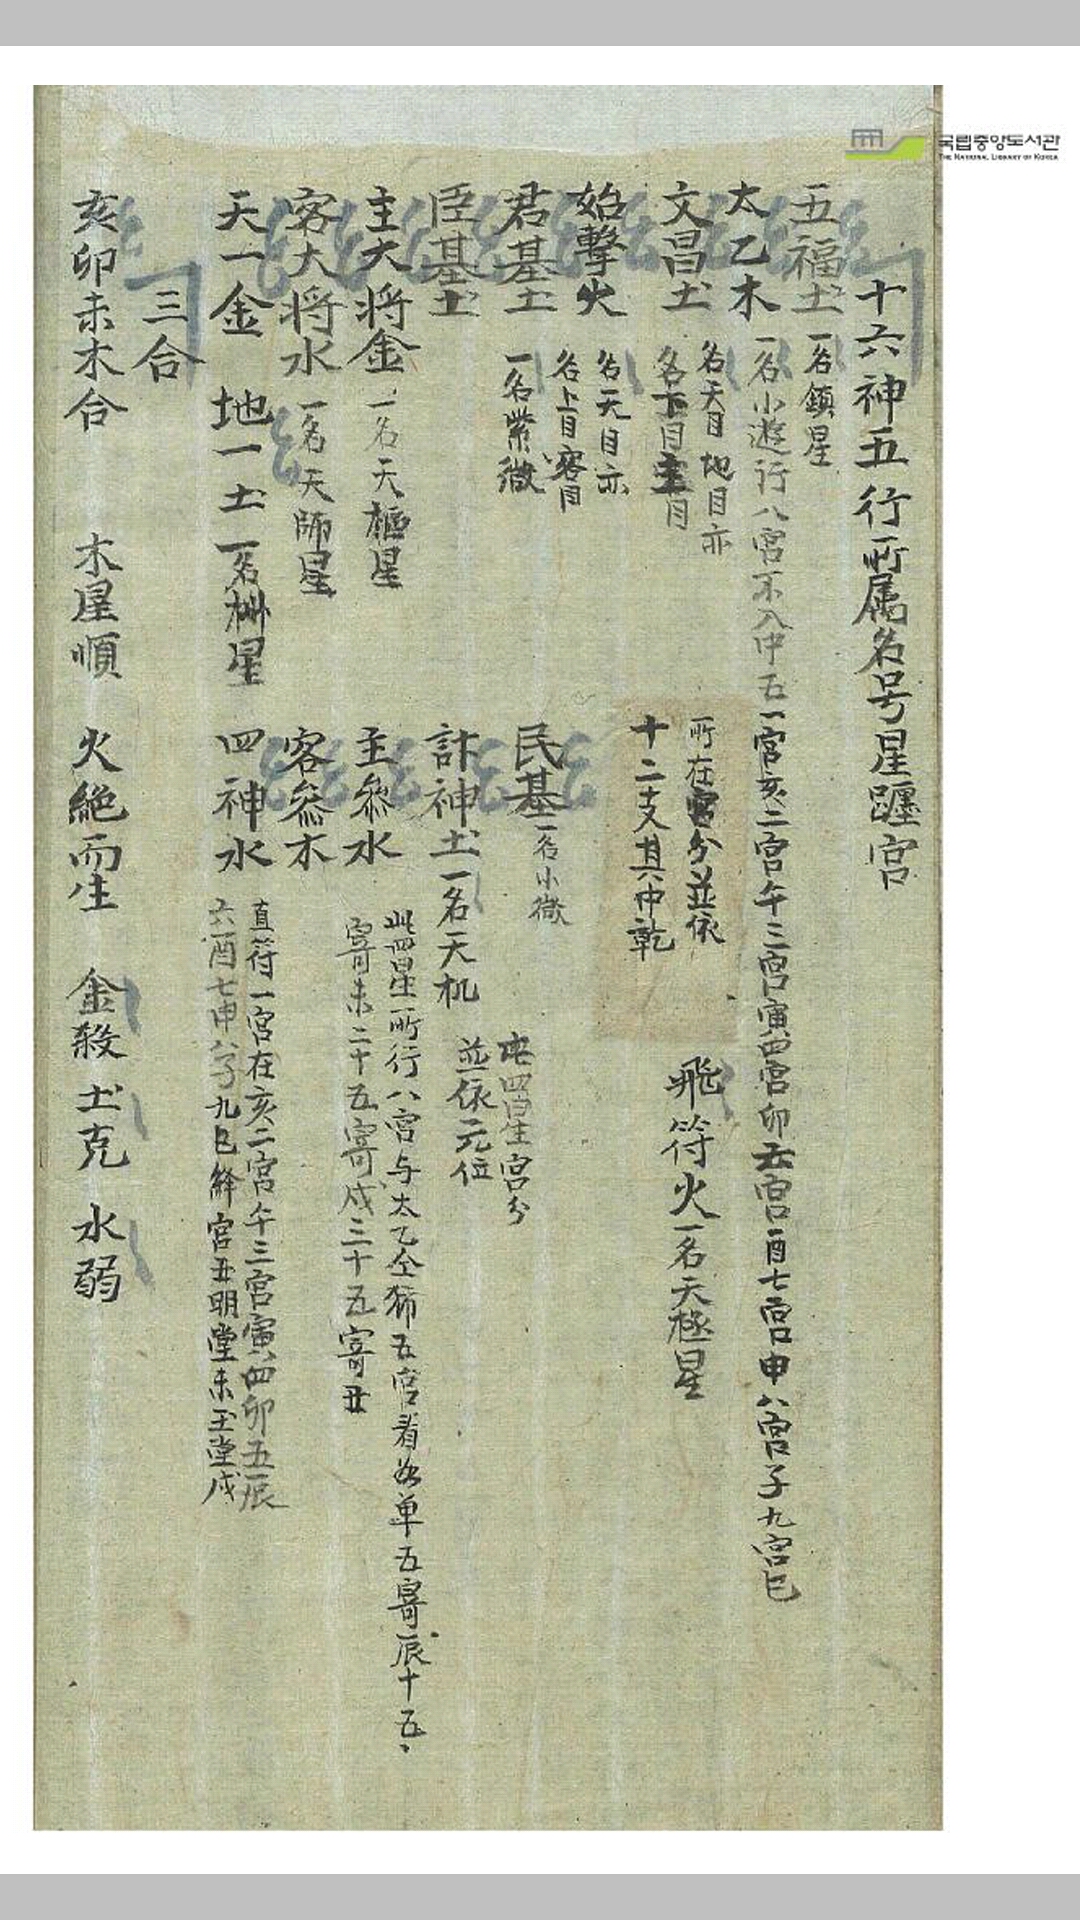 국립중앙도서관
THE NATIONAL LIBRARY OF KOREA
十六神五行所属名号星躔宮
五福土 一名鎮星
太乙木 一名小遊行八宮不入中五一宮亥二宮午三宮寅四宮卯六宮酉七宮申八宮子九宮巳
文昌土 名天目地目亦
名下目主目
飛符火一名天極星
始擊火 名天目亦
名上目客目
所在宮分並依
十二支其中乾
君基土 一名紫微
民基 一名小微
四星宮分
並依元位
臣基土
計神土一名天机
主大将金 一名天樞星
主叅水
此四星所行八宮与太乙仝 五宮看 单五寄辰十五
寄未二十五寄戌三十五寄丑
客大将水 一名天師星
客叅木
天一金 地一土 一名 星
四神水 直符一宮在亥二宮午三宮寅四卯五辰
六酉七申八子九巳絳宮丑明堂未玉堂戌
三合
亥卯未木合 木星順 火絶而生 金殺 土克 水弱